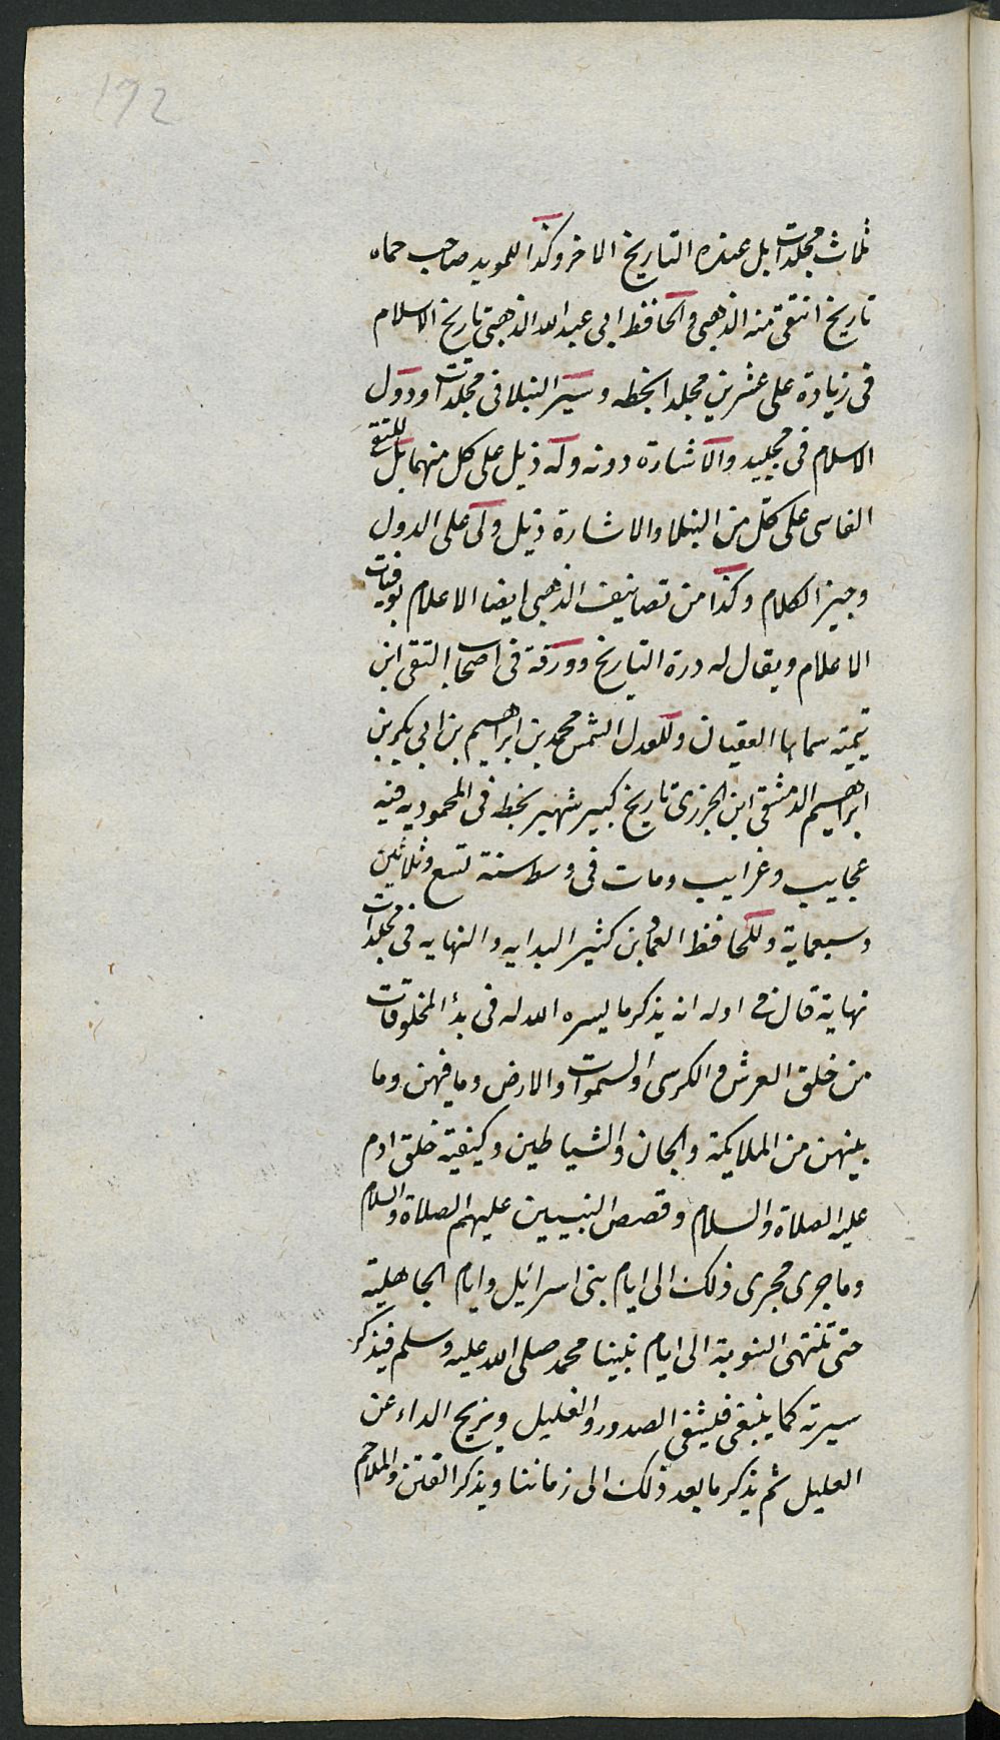 172
ثلاث مجلدات بل عنده التاريخ الاخر وكذا للمويد صاحب حماه
تاريخ انتقى منه الذهبى والحافظ ابى عبد الله الذهبى تاريخ الاسلام
فى زيادة على عشرين مجلدا بخطه و سير النبلا فى مجلدات و دول
الاسلام فى مجليد والاشارة دونه وله ذيل على كل منهما بل للتقى
الفاسى على كل من النبلا والاشارة ذيل ولى على الدول
وجيز الكلام وكذا من تصانيف الذهبى ايضا الاعلام بوفيات
الاعلام ويقال له درة التاريخ وورقة فى اصحاب التقى ابن
تيمية سماها القبان وللعدل الشمس محمد بن ابراهيم بن ابى بكر بن
ابراهيم الدمشقى ابن الجزرى تاريخ كبير شهير بخطه فى المحموديه فيه
عجايب وغرايب ومات فى وسط سنة تسع وثلاثين
وسبعماية وللحافظ العماد بن كثير البدايه والنهايه فى مجلدات
نهاية قال فى اوله انه يذكر ما يسره الله له فى بدأ المخلوقات
من خلق العرش والكرسى والسموات والارض وما فيهن وما
بينهن من الملايكة والجان والشياطين وكيفية خلق ادم
عليه الصلاة والسلام وقصص النبيين عليهم الصلاة والسلام
وما جرى مجرى ذلك الى ايام بنى اسرائيل وايام الجاهلية
حتى تنتهى النبوة الى ايام نبينا محمد صلى الله عليه وسلم فيذكر
سيرته كما ينبغى فيشفى الصدور والغليل ويزيح الداء عن
العليل ثم يذكر ما بعد ذلك الى زماننا ويذكر الفتن والملاحم